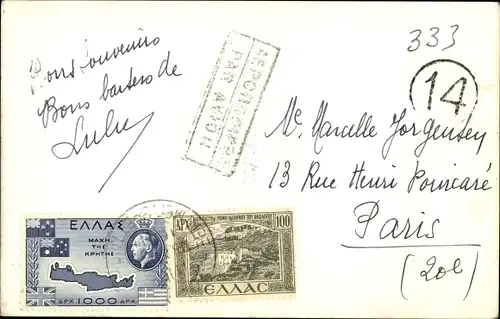 Bons souvenirs
Bons baisers de
Lulu
ΑΕΡΟΠΟΡΙΚΩΣ
PAR AVION
333
14
Mr. Marcelle Jorgensen
13 Rue Henri Poincaré
Paris
(20e)
ΕΛΛΑΣ
ΜΑΧΗ
ΤΗΣ
ΚΡΗΤΗΣ
ΔΡΧ 1000 ΔΡΧ
ΔΡΧ 100
ΕΛΛΑΣ